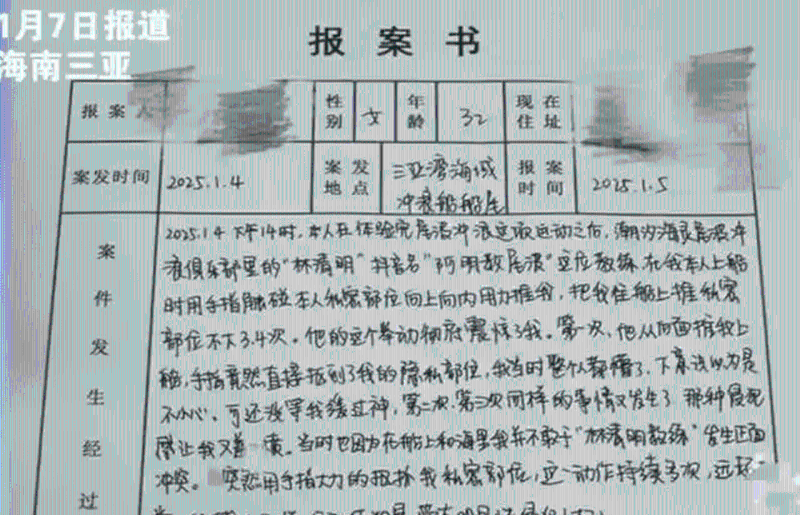 1月7日报道
海南三亚
报案书
报案人 性别 女 年龄 32 现在住址
案发时间 2025.1.4 案发地点 三亚湾海域冲浪船船尾 报案时间 2025.1.5
案件发生经过
2025.1.4 下午14时，本人在体验完尾浪冲浪这项运动之后，潮汐海灵尾浪冲
浪俱乐部里的"林清明"抖音名"阿明教尾浪" 教练，在我本人上船
时用手指触碰本人私密部位向上向内用力推我，把我往船上推私密
部位不下3.4次。他的这个举动彻底震惊了我。第一次，他从后面推我上
船，手指竟然直接抵到了我的隐私部位，我当时整个人都懵了，下意识以为是
不小心，可还没等我缓过神，第二次、第三次同样的事情又发生了 那种侵犯
感让我又羞 愤。当时也因为在船上和海里我并不敢于"林清明教练"发生正面
冲突。 突然用手指大力的 我私密部位，这一动作持续多次，远